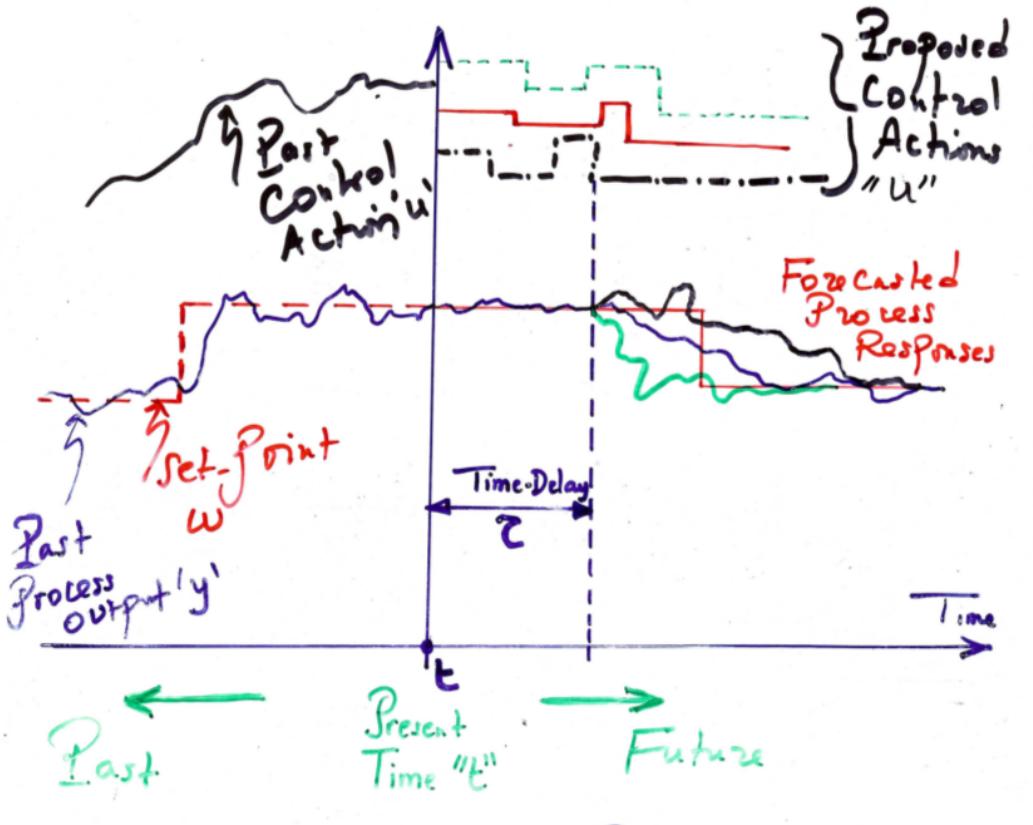 Proposed
Control
Actions
"u"
Past
Control
Action 'u'
Forecasted
Process
Responses
Set-Point
ω
Time-Delay
τ
Past
Process
output 'y'
Time
t
Past
Present
Time "t"
Future